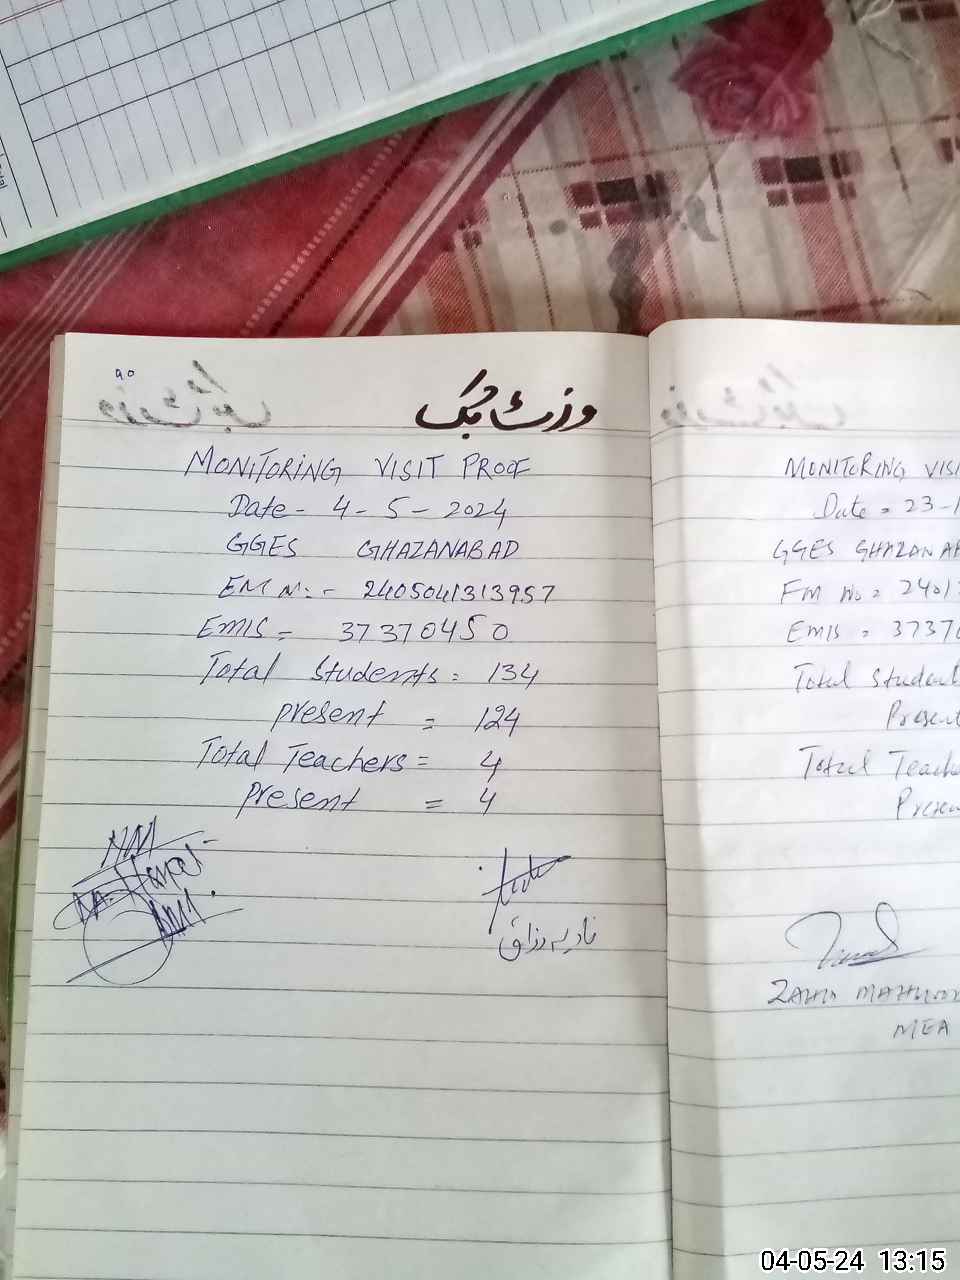 90
وزٹ بک
MONITORING VISIT PROOF
Date - 4 - 5 - 2024
GGES GHAZANABAD
EM N: - 2405041313957
EMIS = 37370450
Total Students = 134
present = 124
Total Teachers = 4
present = 4
نادیہ رزاق
MONITORING VISI
Date = 23-1
GGES GHAZANA
EM No = 2401
EMIS = 3737
Total Student
Present
Total Teache
Presen
MEA
04-05-24 13:15